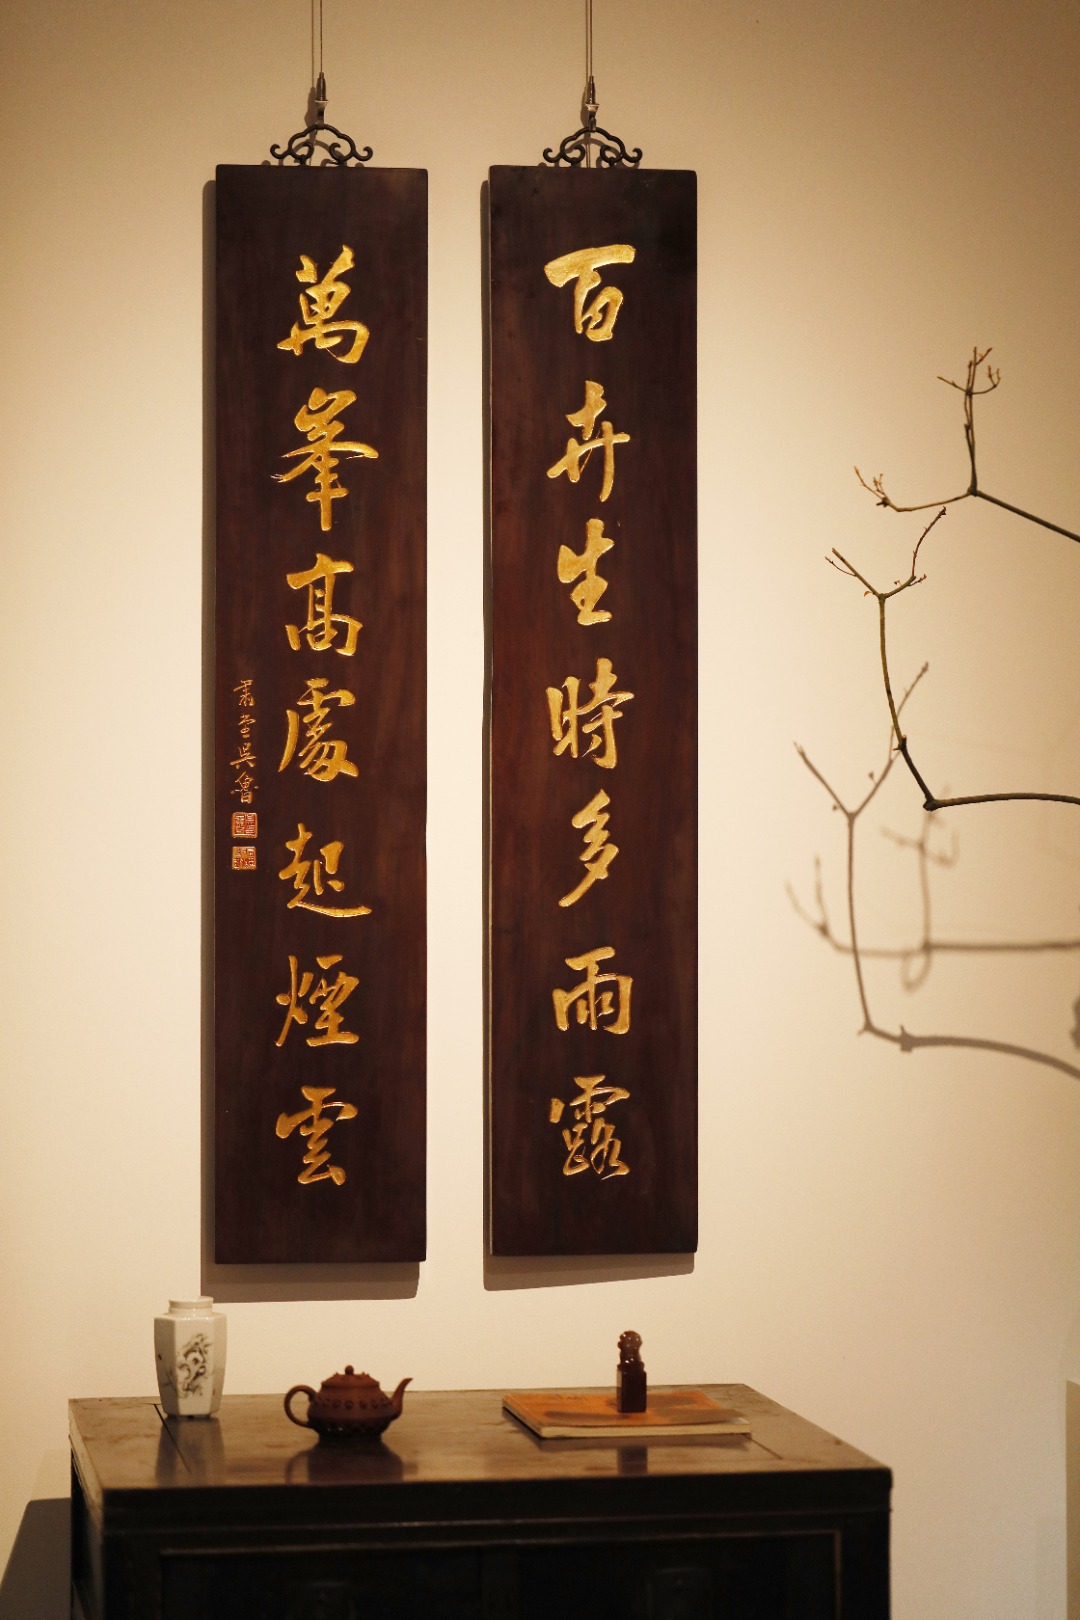 百卉生時多雨露
萬峯高處起煙雲
肅堂吳魯